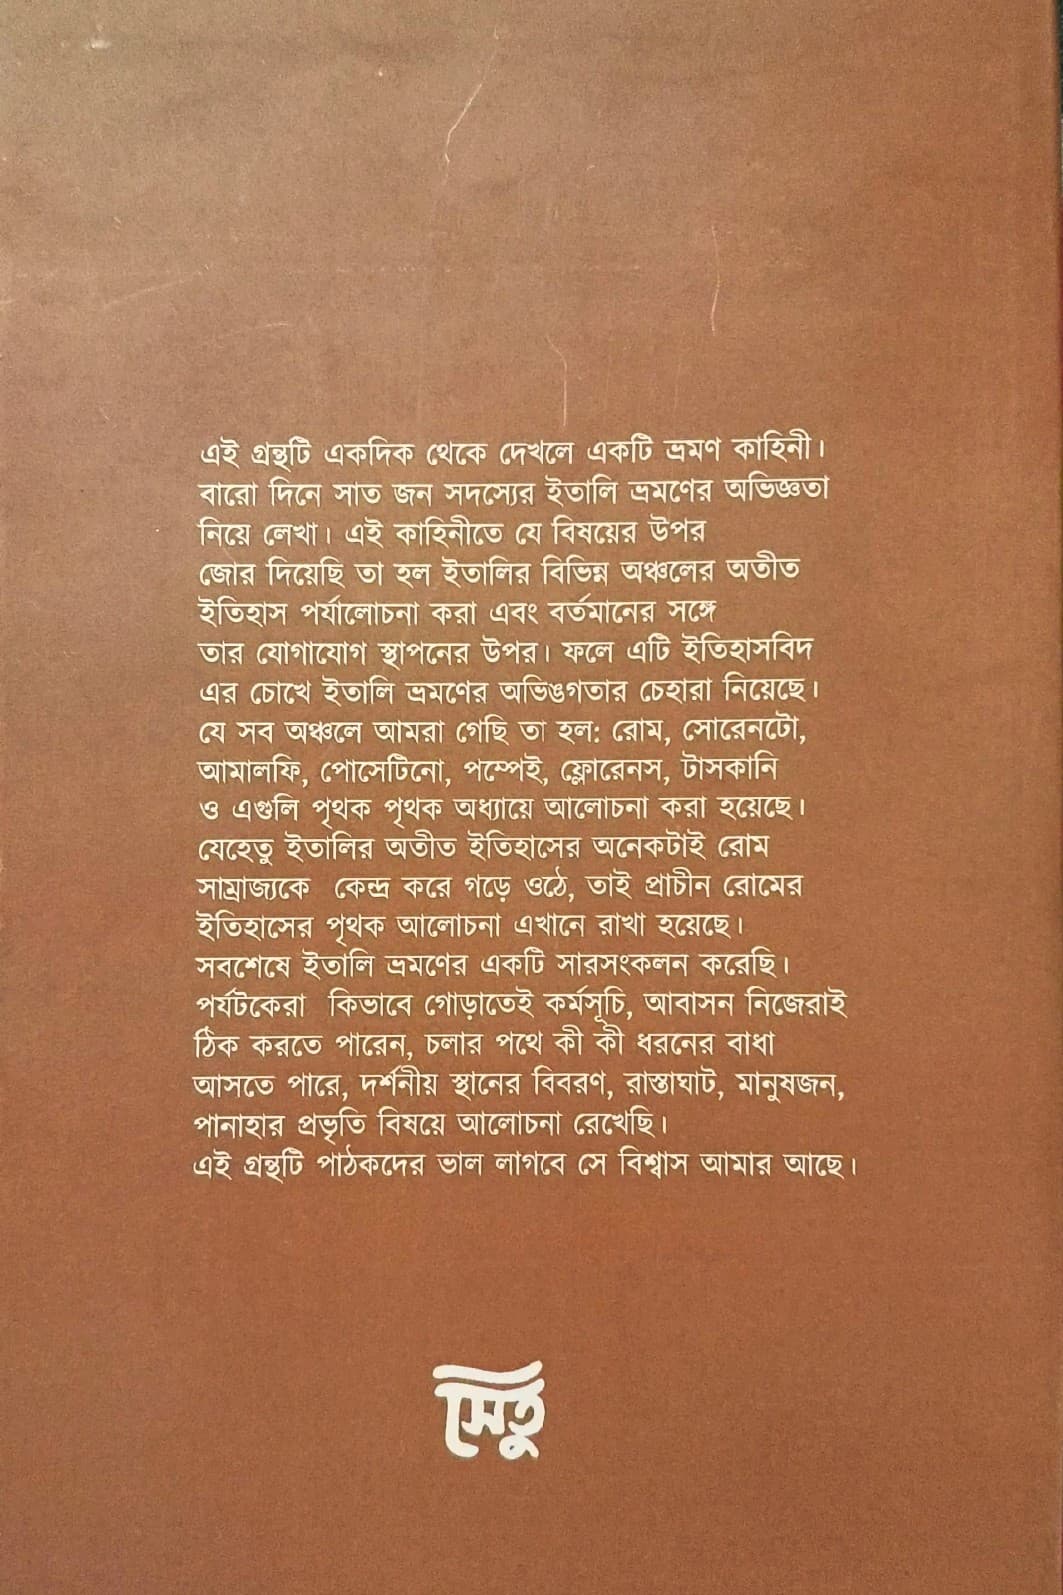 এই গ্রন্থটি একদিক থেকে দেখলে একটি ভ্রমণ কাহিনী।
বারো দিনে সাত জন সদস্যের ইতালি ভ্রমণের অভিজ্ঞতা
নিয়ে লেখা। এই কাহিনীতে যে বিষয়ের উপর
জোর দিয়েছি তা হল ইতালির বিভিন্ন অঞ্চলের অতীত
ইতিহাস পর্যালোচনা করা এবং বর্তমানের সঙ্গে
তার যোগাযোগ স্থাপনের উপর। ফলে এটি ইতিহাসবিদ
এর চোখে ইতালি ভ্রমণের অভিঙগতার চেহারা নিয়েছে।
যে সব অঞ্চলে আমরা গেছি তা হল: রোম, সোরেনটো,
আমালফি, পোসেটিনো, পম্পেই, ফ্লোরেনস, টাসকানি
ও এগুলি পৃথক পৃথক অধ্যায়ে আলোচনা করা হয়েছে।
যেহেতু ইতালির অতীত ইতিহাসের অনেকটাই রোম
সাম্রাজ্যকে কেন্দ্র করে গড়ে ওঠে, তাই প্রাচীন রোমের
ইতিহাসের পৃথক আলোচনা এখানে রাখা হয়েছে।
সবশেষে ইতালি ভ্রমণের একটি সারসংকলন করেছি।
পর্যটকেরা কিভাবে গোড়াতেই কর্মসূচি, আবাসন নিজেরাই
ঠিক করতে পারেন, চলার পথে কী কী ধরনের বাধা
আসতে পারে, দর্শনীয় স্থানের বিবরণ, রাস্তাঘাট, মানুষজন,
পানাহার প্রভৃতি বিষয়ে আলোচনা রেখেছি।
এই গ্রন্থটি পাঠকদের ভাল লাগবে সে বিশ্বাস আমার আছে।
সেতু